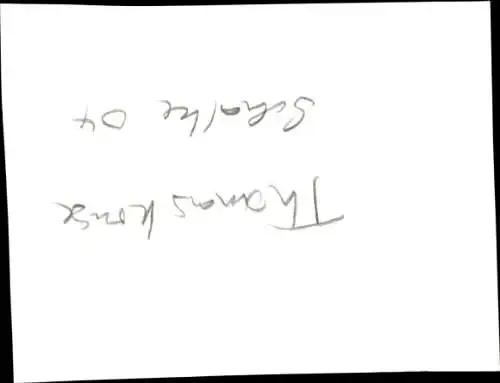 Thomas Kruse
Schalke 04